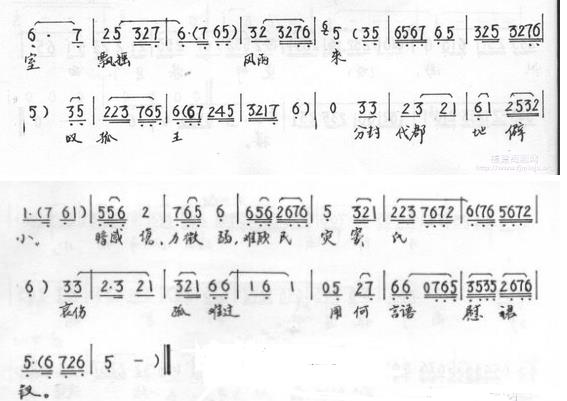 6· 7 | 25 327 | 6·(7 65) | 32 3276 | 5 (35 | 6567 65 | 325 3276 |
室 飘摇 风雨 来
5) 35 | 223 765 | 6(67 245 | 3217 6) | 0 33 | 23 21 | 61 2532 |
叹 孤 王 分封 代郡 地 僻
1·(7 61) | 556 2 | 765 6 | 656 2676 | 5 321 | 223 7672 | 6(76 5672 |
小。 暗感 力微 弱, 难 民 灾害, 民
6) 33 | 2·3 21 | 321 66 | 16 1 | 05 27 | 66 0765 | 3535 2676 |
哀伤 孤 难过 用 何 言语 慰
5·(6 726 | 5 - )‖